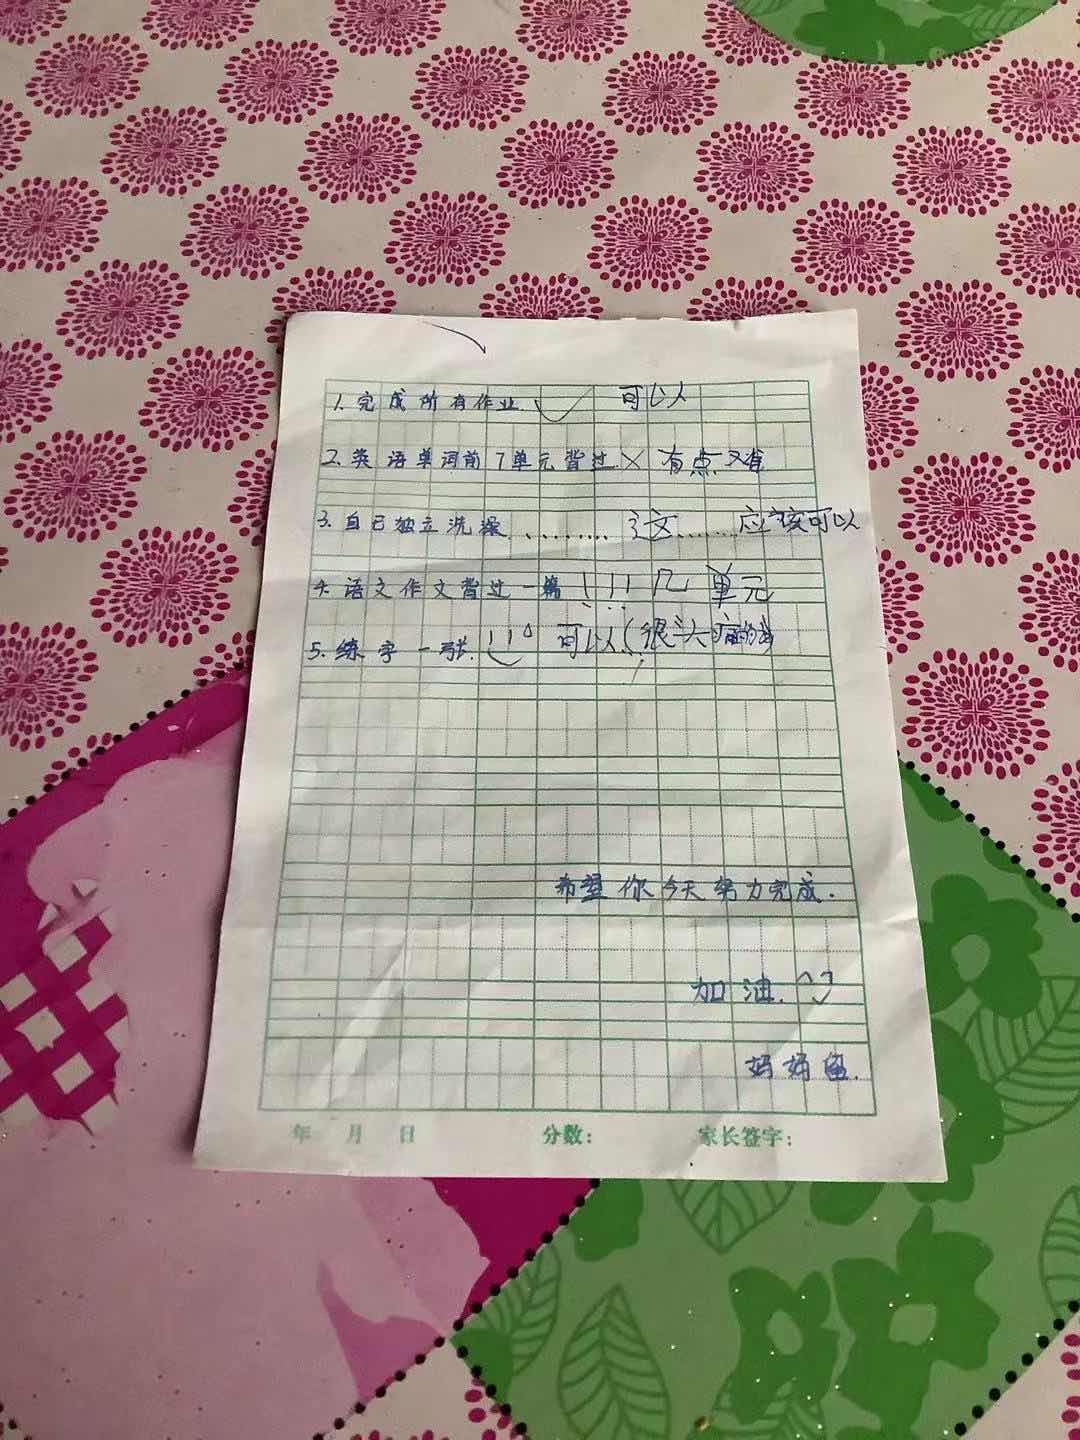 1. 完成所有作业. 可以
2. 英语单词前7单元背过 × 有点难
3. 自己独立洗澡......... 这...... 应该可以
4. 语文作文背过一篇 !!! 几单元
5. 练字一张. 可以(很头痛的
希望你今天努力完成.
加油.
妈妈留.
年 月 日 分数: 家长签字: